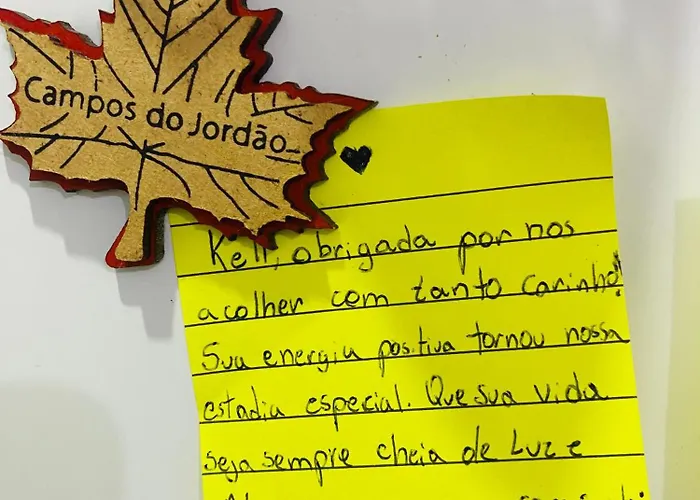 Campos do Jordão
Kell, obrigada por nos
acolher com tanto carinho!
Sua energia positiva tornou nossa
estadia especial. Que sua vida
seja sempre cheia de Luz e